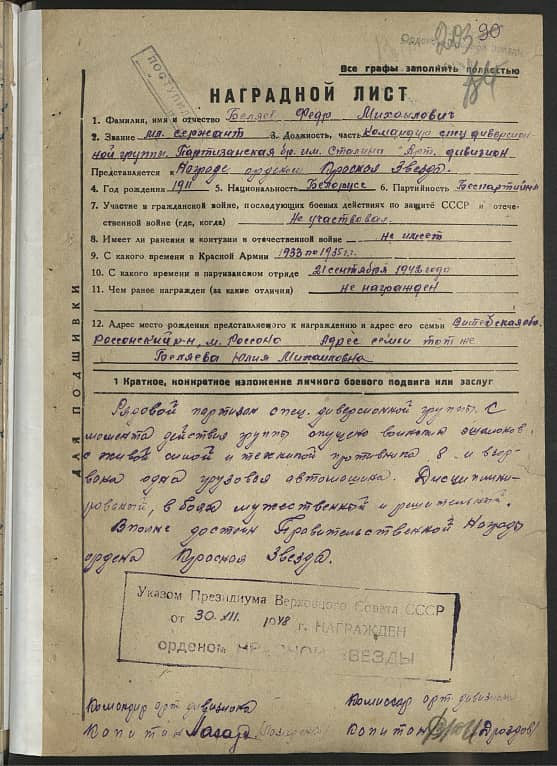 293 90
Орден
ПОСТУПИЛ
Все графы заполнить полностью
НАГРАДНОЙ ЛИСТ
1. Фамилия, имя и отчество Беляев Федр Михайлович
2. Звание мл. сержант 3. Должность, часть Командир спец. диверсион
ной группы Партизанская бр. им. Сталина Арт. дивизион
Представляется к Награде орденом Красная Звезда.
4. Год рождения 1911 5. Национальность Белорусс 6. Партийность Беспартийн
7. Участие в гражданской войне, последующих боевых действиях по защите СССР и отече-
ственной войне (где, когда) Не участвовал
8. Имеет ли ранения и контузии в отечественной войне не имеет
9. С какого времени в Красной Армии 1933 по 1935 г.г.
10. С какого времени в партизанском отряде 21 сентября 1942 года
11. Чем ранее награжден (за какие отличия) не награжден
12. Адрес место рождения представляемого к награждению и адрес его семьи Витебская обл.
Россонский р-н, м. Россоно Адрес семьи тот же
Беляева Юлия Михайловна
ДЛЯ ПОДШИВКИ
1 Краткое, конкретное изложение личного боевого подвига или заслуг
Рядовой партизан спец. диверсионной группы. С
момента действия группы спущено воинских эшалонов
с живой силой и техникой противника 8 и взор-
вана одна грузовая автомашина. Дисциплини-
рованый, в боях мужественной и решительный.
Вполне достоин Правительственной Награды
ордена Красная Звезда.
Указом Президиума Верховного Совета СССР
от 30.XII. 1948 г. НАГРАЖДЕН
орденом КРАСНОЙ ЗВЕЗДЫ
Командир арт. дивизиона Комиссар арт. дивизиона
Капитан Капитан (Дроздов)